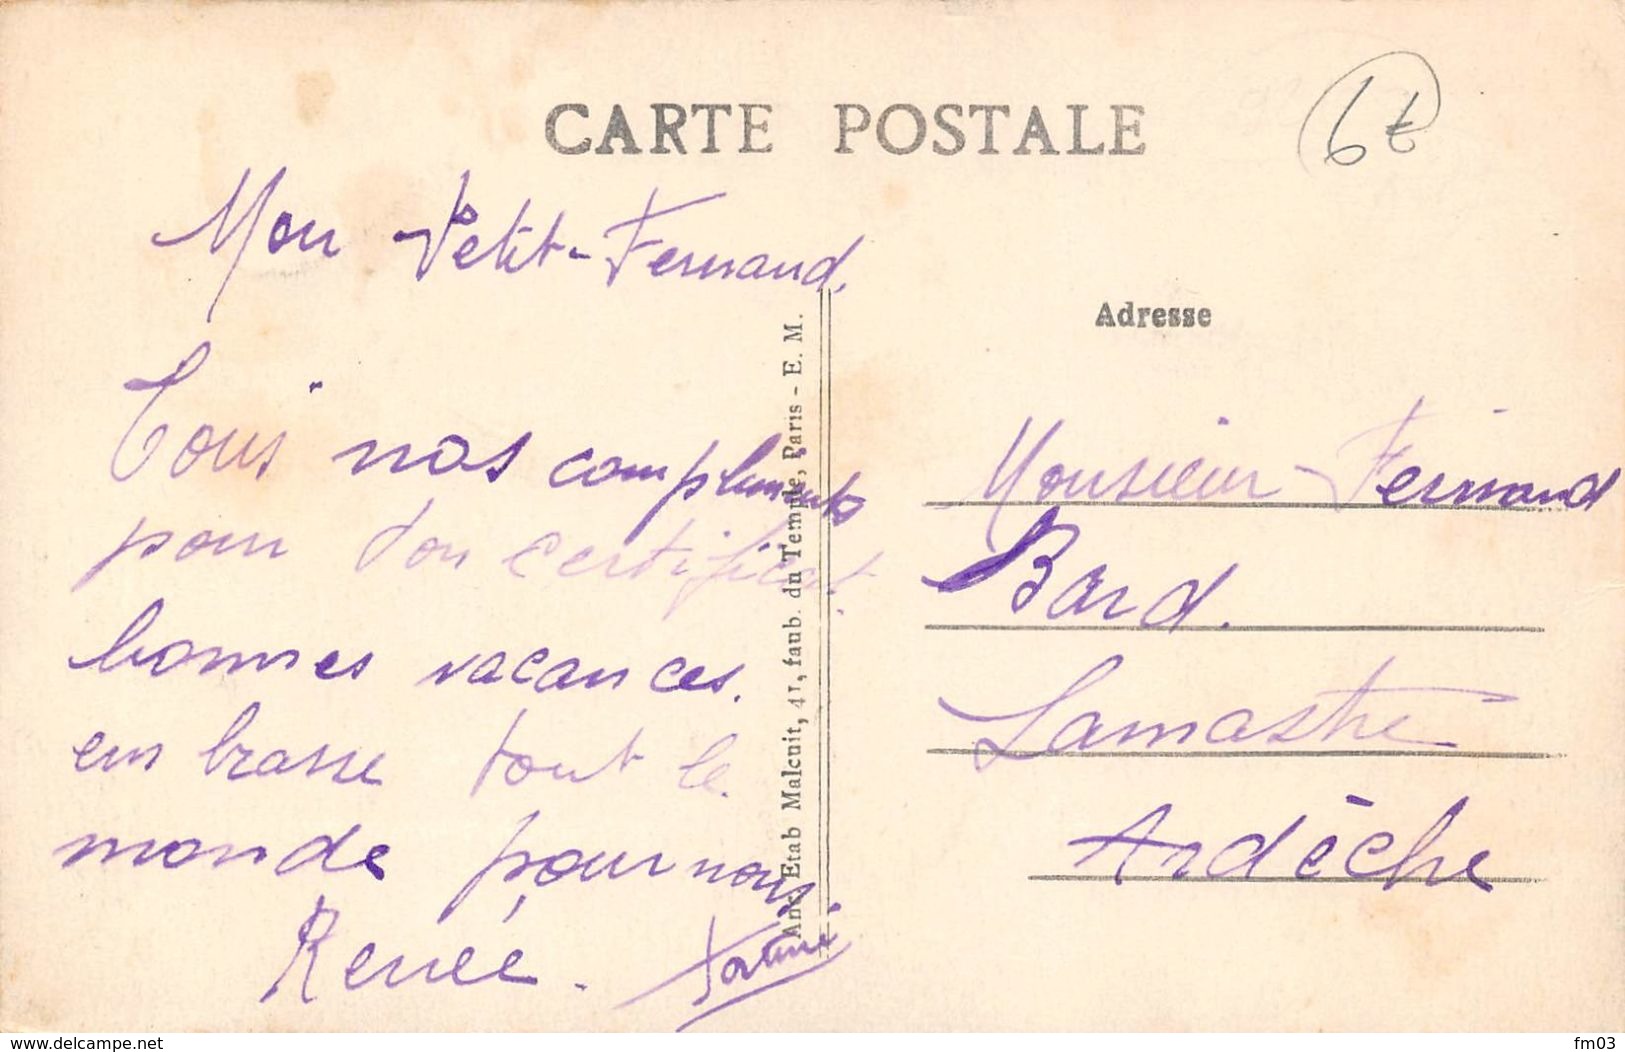 CARTE POSTALE
6€
Mon Petit-Fernand.
Tous nos compliments
pour ton certificat.
bonnes vacances.
embrasse tout le
monde pour nous
Renée.
Anc Etab Malcuit, 41, faub. du Temple, Paris - E. M.
Adresse
Monsieur Fernand
Bard.
Lamastre
Ardèche
www.delcampe.net
fm03